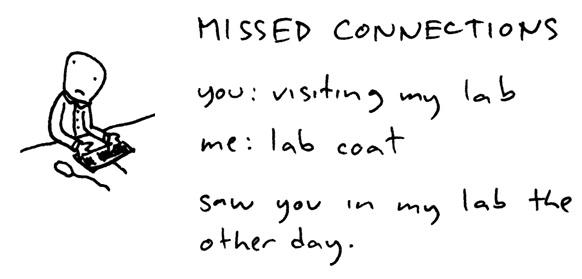 MISSED CONNECTIONS
you: visiting my lab
me: lab coat
saw you in my lab the
other day.